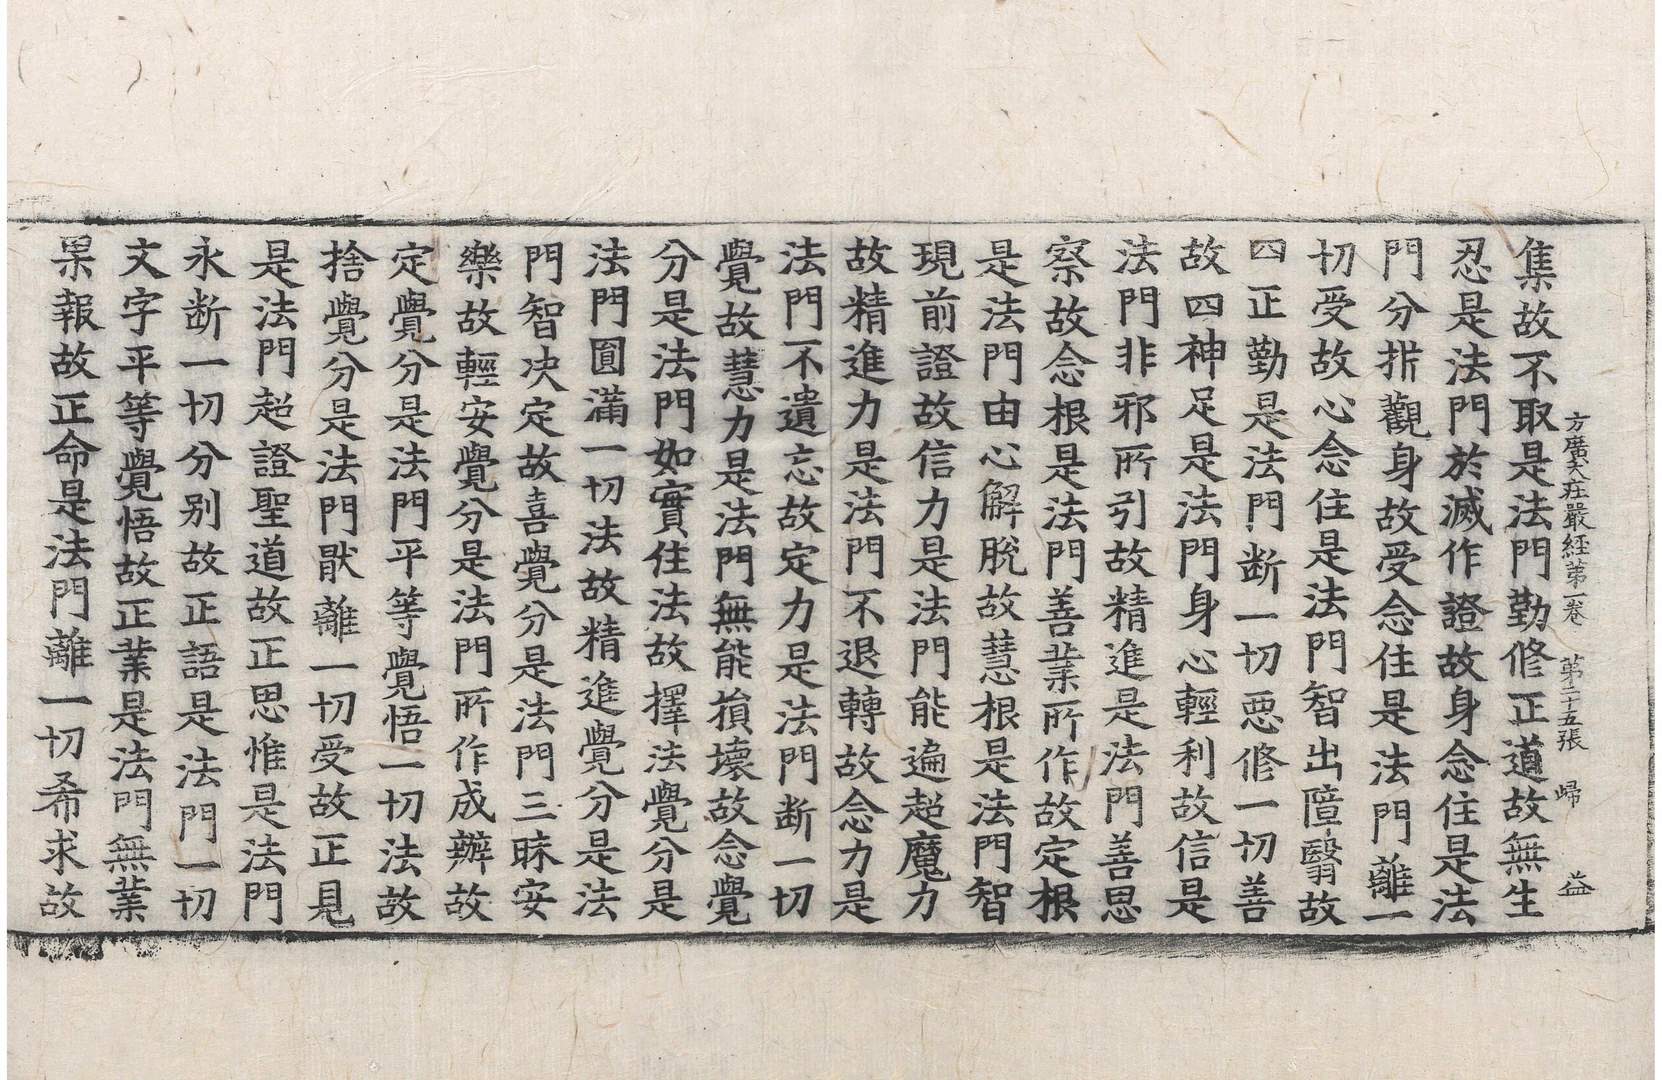 方廣大莊嚴經第一卷 第二十五張 歸 益
集故不取是法門勤修正道故無生
忍是法門於滅作證故身念住是法
門分析觀身故受念住是法門離一
切受故心念住是法門智出障翳故
四正勤是法門断一切惡修一切善
故四神足是法門身心輕利故信是
法門非邪所引故精進是法門善思
察故念根是法門善業所作故定根
是法門由心解脫故慧根是法門智
現前證故信力是法門能遍超魔力
故精進力是法門不退轉故念力是
法門不遺忘故定力是法門断一切
覺故慧力是法門無能損壞故念覺
分是法門如實住法故擇法覺分是
法門圓滿一切法故精進覺分是法
門智决定故喜覺分是法門三昧安
樂故輕安覺分是法門所作成辦故
定覺分是法門平等覺悟一切法故
捨覺分是法門猒離一切受故正見
是法門超證聖道故正思惟是法門
永断一切分别故正語是法門一切
文字平等覺悟故正業是法門無業
果報故正命是法門離一切希求故